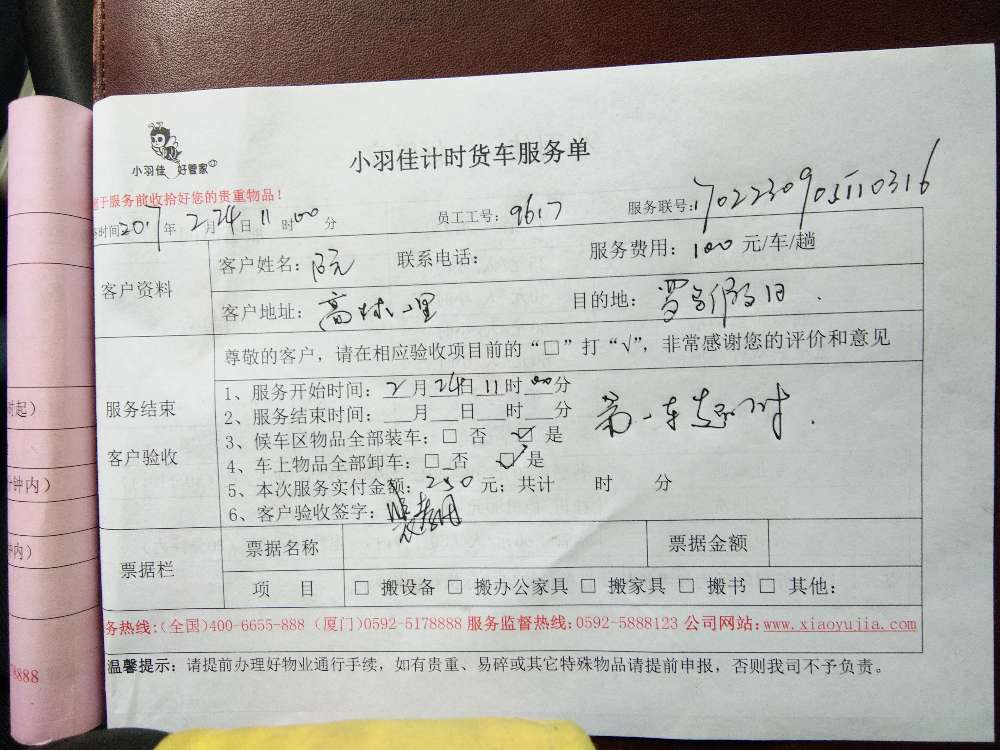 小羽佳 好管家
小羽佳计时货车服务单
于服务前收拾好您的贵重物品！
时间2017年2月24日11时00分 员工工号：9617 服务联号：170223090511 0316
客户资料
客户姓名：阮 联系电话： 服务费用：100元/车/趟
客户地址：高林里 目的地：
服务结束
客户验收
尊敬的客户，请在相应验收项目前的“□”打“√”，非常感谢您的评价和意见
1、服务开始时间：2月24日11时00分
2、服务结束时间：___月___日___时___分
3、候车区物品全部装车：□ 否 ☑ 是
4、车上物品全部卸车：□ 否 ☑ 是
第一车
5、本次服务实付金额：250元；共计 时 分
6、客户验收签字：
票据栏
票据名称 票据金额
项 目 □ 搬设备 □ 搬办公家具 □ 搬家具 □ 搬书 □ 其他：
务热线：(全国)400-6655-888 (厦门)0592-5178888 服务监督热线：0592-5888123 公司网站：www.xiaoyujia.com
温馨提示：请提前办理好物业通行手续，如有贵重、易碎或其它特殊物品请提前申报，否则我司不予负责。
时起）
钟内）
钟内）
8888